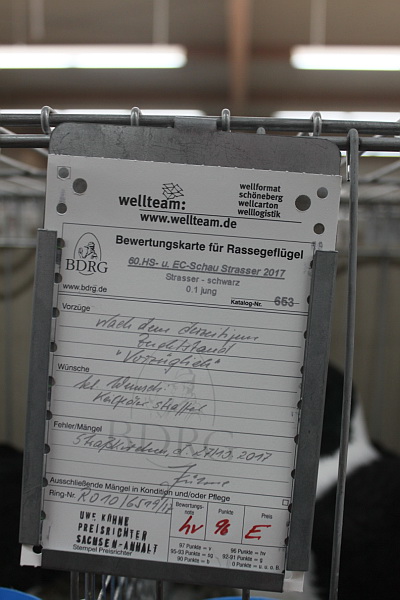 wellteam:
www.wellteam.de
wellformat
schöneberg
wellcarton
welllogistik
Bewertungskarte für Rassegeflügel
BDRG
www.bdrg.de
60.HS- u. EC-Schau Strasser 2017
Strasser - schwarz
0.1 jung
Katalog-Nr. 653
Vorzüge
Nach dem derzeitigen
Zuchtstand
"Vorzüglich"
Wünsche
BDRG
Fehler/Mängel
d. 27.10.2017
Ausschließende Mängel in Kondition und/oder Pflege
Ring-Nr.
Bewertungs-
note
Punkte
Preis
hv
96
E
UWE KÜHNE
PREISRICHTER
SACHSEN-ANHALT
Stempel Preisrichter
97 Punkte = v
96 Punkte = hv
95-93 Punkte = sg
92-91 Punkte = g
90 Punkte = b
0 Punkte = o. u. o.B.